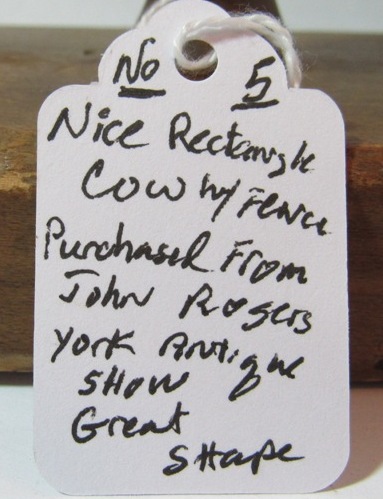 No 5
Nice Rectangle
Cow w/ Fence
Purchased From
John Rogers
York Antique
Show
Great
Shape